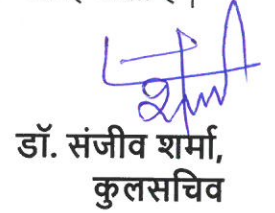 डॉ. संजीव शर्मा,
कुलसचिव